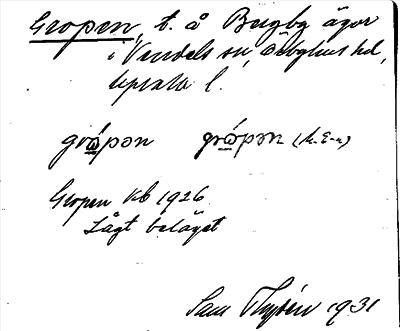 Gropen, t. å Bergby ägor
i Vendels sn, Örbyhus hd,
Uppsala l.
grópən grópən (M. E-n)
Gropen Kb 1926
Lågt beläget
Sam Thysén 1931